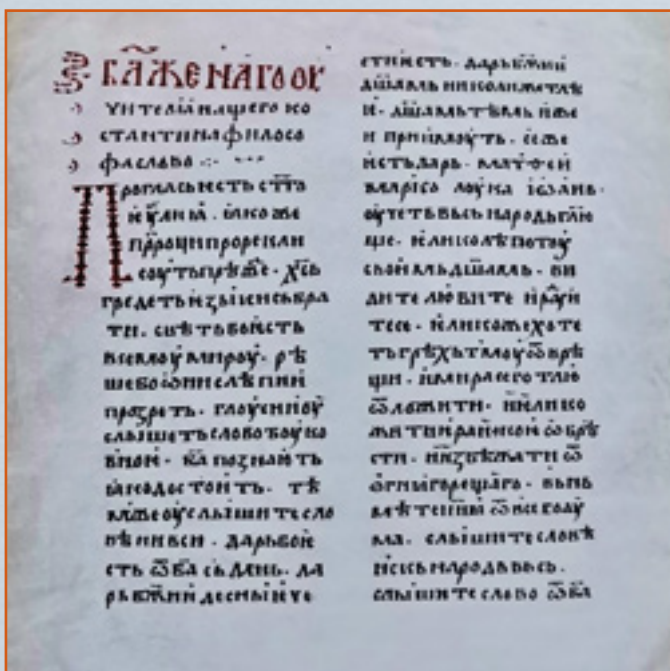 Бл҃аженаго оу
чителꙗ нашего ко
стантина филосо
фа слово
Прогласъ ѥсть ст҃го
ѥу҃лиꙗ. ꙗкоже
пр҃роци прорекли
соуть прѣж҃е. х҃сь
гредеть ѥзыки сьбра
ти. свѣть бо ѥсть
всемоу мироу. рѣ
ше бо ѡни слѣпии
прозреть. глоусии оу
слышеть слово боуко
вноѥ. б҃а познають
ꙗко достоить. тѣ
мже оуслышите сло
вѣни вси. дарь бо ѥ
сть ѿ б҃а сь дань. да
рь б҃жии десныѥ че
сти ѥсть. дарь б҃жии
дш҃амь николиже тлѣ
ѥ. дш҃амь тѣмь иже
и приимоуть. се же
ѥсть дарь. матѳеи
марко лоука іѡань.
оучеть вьсь народь гл҃ю
ще. ѥлико лѣпотоу
своимь дш҃амь. ви
дите любите и
те се. ѥликоже хоте
ть грѣхь тмоу ѿврѣ
щи. и мира сего тлю
ѿложити. и ѥлико
жити раискоѥ ѡбрѣ
сти. и избежати ѿ
ѡгни горещаго. вьнь
мѣте ѿ всего оу
ма. слышите словѣ
ньскь народь вьсь.
слышите слово ѿ б҃а